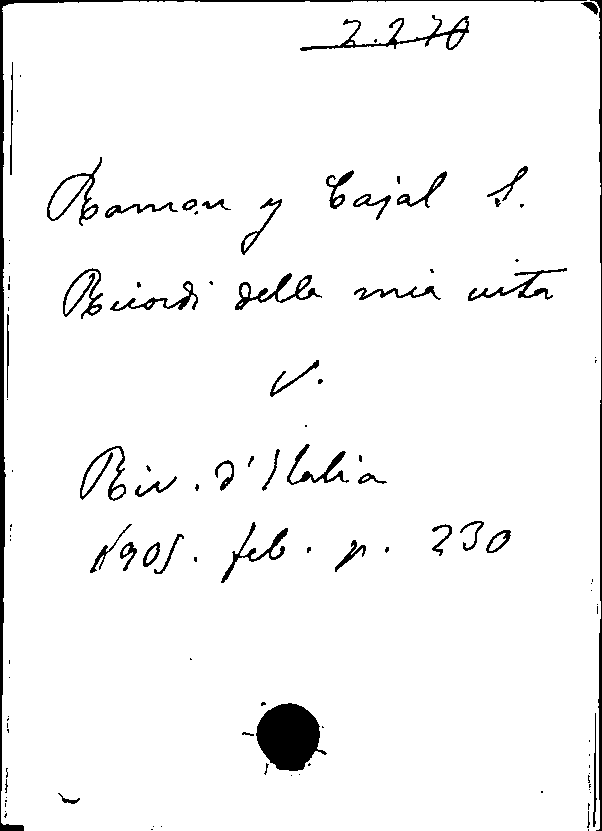 2.270
Ramon y Cajal S.
Ricordi della mia vita
V.
Riv. d'Italia
1905. feb. p. 230